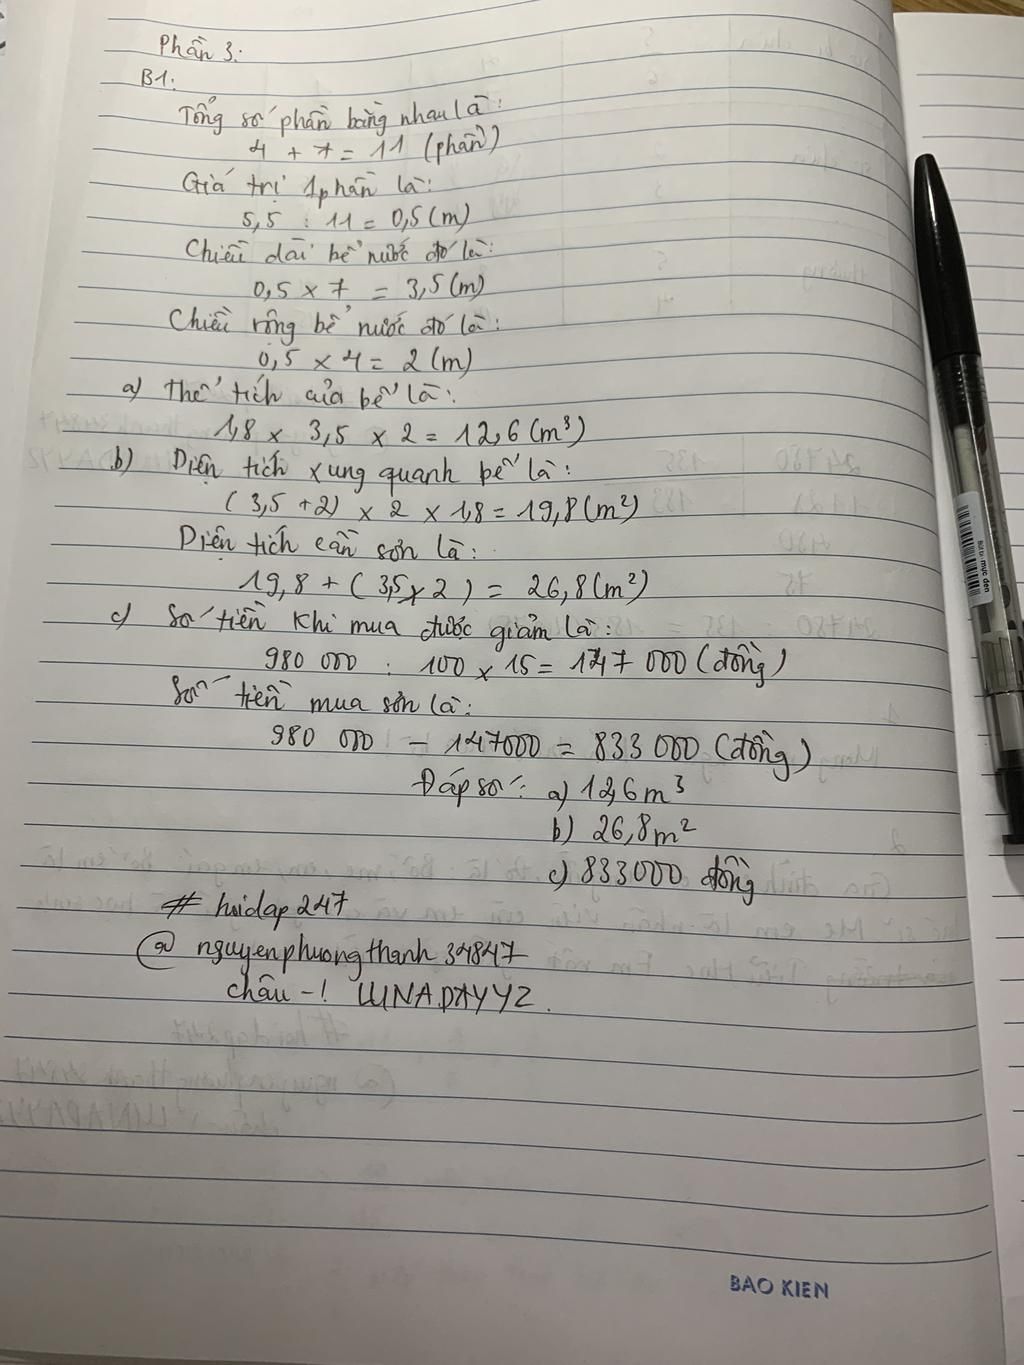 Phần 3:
B1:
Tổng số phần bằng nhau là:
4 + 7 = 11 (phần)
Giá trị 1 phần là:
5,5 : 11 = 0,5 (m)
Chiều dài bể nước đó là:
0,5 x 7 = 3,5 (m)
Chiều rộng bể nước đó là:
0,5 x 4 = 2 (m)
a) Thể tích của bể là:
1,8 x 3,5 x 2 = 12,6 (m³)
b) Diện tích xung quanh bể là:
(3,5 + 2) x 2 x 1,8 = 19,8 (m²)
Diện tích cần sơn là:
19,8 + (3,5 x 2) = 26,8 (m²)
c) Số tiền khi mua được giảm là:
980 000 : 100 x 15 = 147 000 (đồng)
Số tiền mua sơn là:
980 000 - 147000 = 833 000 (đồng)
Đáp số: a) 12,6 m³
b) 26,8 m²
c) 833000 đồng
# hoidap 247
@ nguyenphuongthanh 34847
châu -! LUNADAYYZ.
BAO KIEN